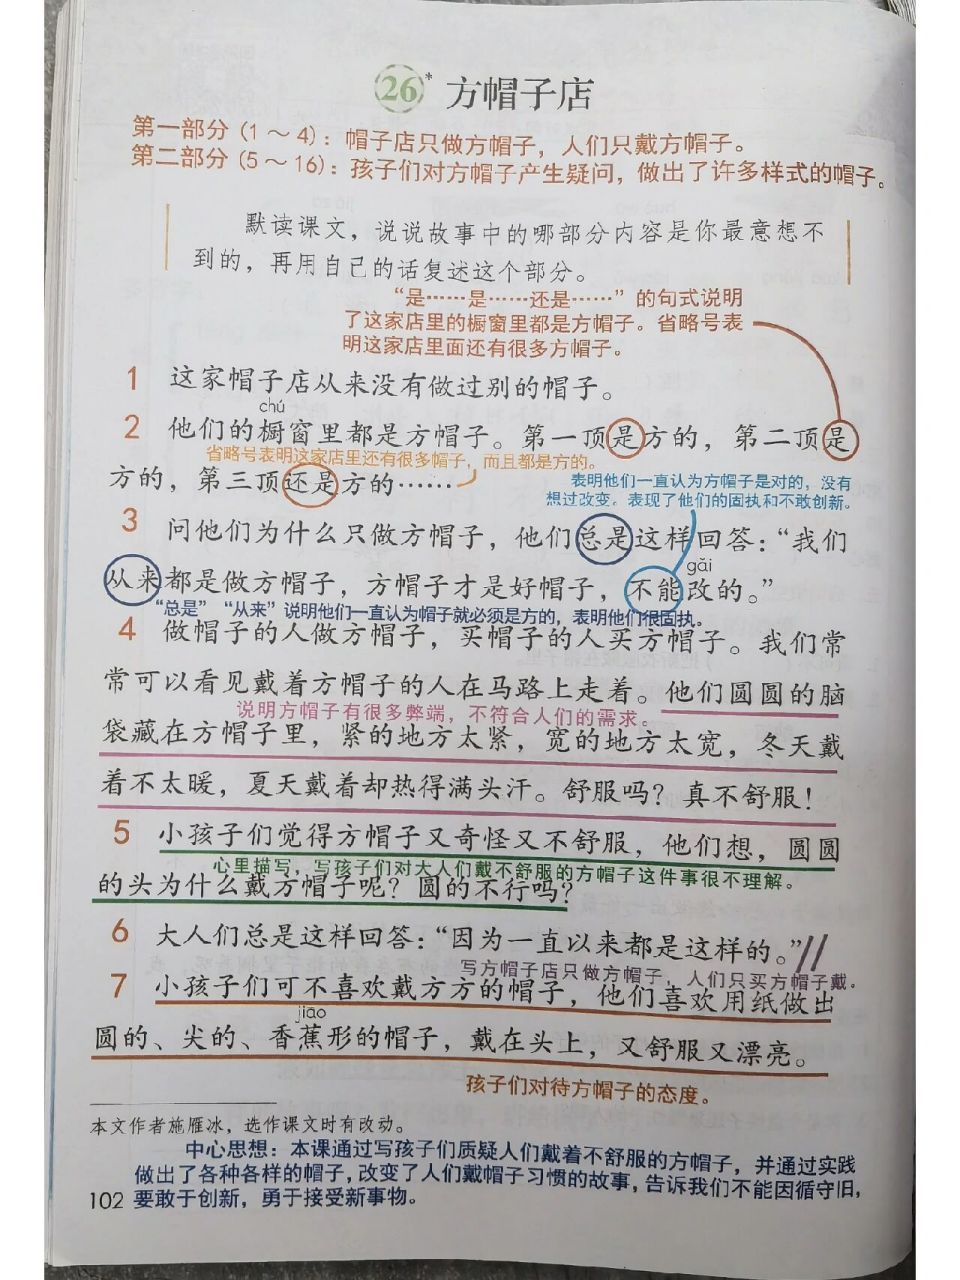 26* 方帽子店
第一部分（1～4）：帽子店只做方帽子，人们只戴方帽子。
第二部分（5～16）：孩子们对方帽子产生疑问，做出了许多样式的帽子。
默读课文，说说故事中的哪部分内容是你最意想不
到的，再用自己的话复述这个部分。
“是……是……还是……”的句式说明
了这家店里的橱窗里都是方帽子。省略号表
明这家店里面还有很多方帽子。
1 这家帽子店从来没有做过别的帽子。
chú
2 他们的橱窗里都是方帽子。第一顶是方的，第二顶是
省略号表明这家店里还有很多帽子，而且都是方的。
方的，第三顶还是方的……
表明他们一直认为方帽子是对的，没有
想过改变。表现了他们的固执和不敢创新。
3 问他们为什么只做方帽子，他们总是这样回答：“我们
gǎi
从来都是做方帽子，方帽子才是好帽子，不能改的。”
“总是”“从来”说明他们一直认为帽子就必须是方的，表明他们很固执。
4 做帽子的人做方帽子，买帽子的人买方帽子。我们常
常可以看见戴着方帽子的人在马路上走着。他们圆圆的脑
说明方帽子有很多弊端，不符合人们的需求。
袋藏在方帽子里，紧的地方太紧，宽的地方太宽，冬天戴
着不太暖，夏天戴着却热得满头汗。舒服吗？真不舒服！
5 小孩子们觉得方帽子又奇怪又不舒服，他们想，圆圆
心里描写，写孩子们对大人们戴不舒服的方帽子这件事很不理解。
的头为什么戴方帽子呢？圆的不行吗？
6 大人们总是这样回答：“因为一直以来都是这样的。”
写方帽子店只做方帽子，人们只买方帽子戴。
7 小孩子们可不喜欢戴方方的帽子，他们喜欢用纸做出
jiāo
圆的、尖的、香蕉形的帽子，戴在头上，又舒服又漂亮。
孩子们对待方帽子的态度。
本文作者施雁冰，选作课文时有改动。
中心思想：本课通过写孩子们质疑人们戴着不舒服的方帽子，并通过实践
做出了各种各样的帽子，改变了人们戴帽子习惯的故事，告诉我们不能因循守旧，
102 要敢于创新，勇于接受新事物。